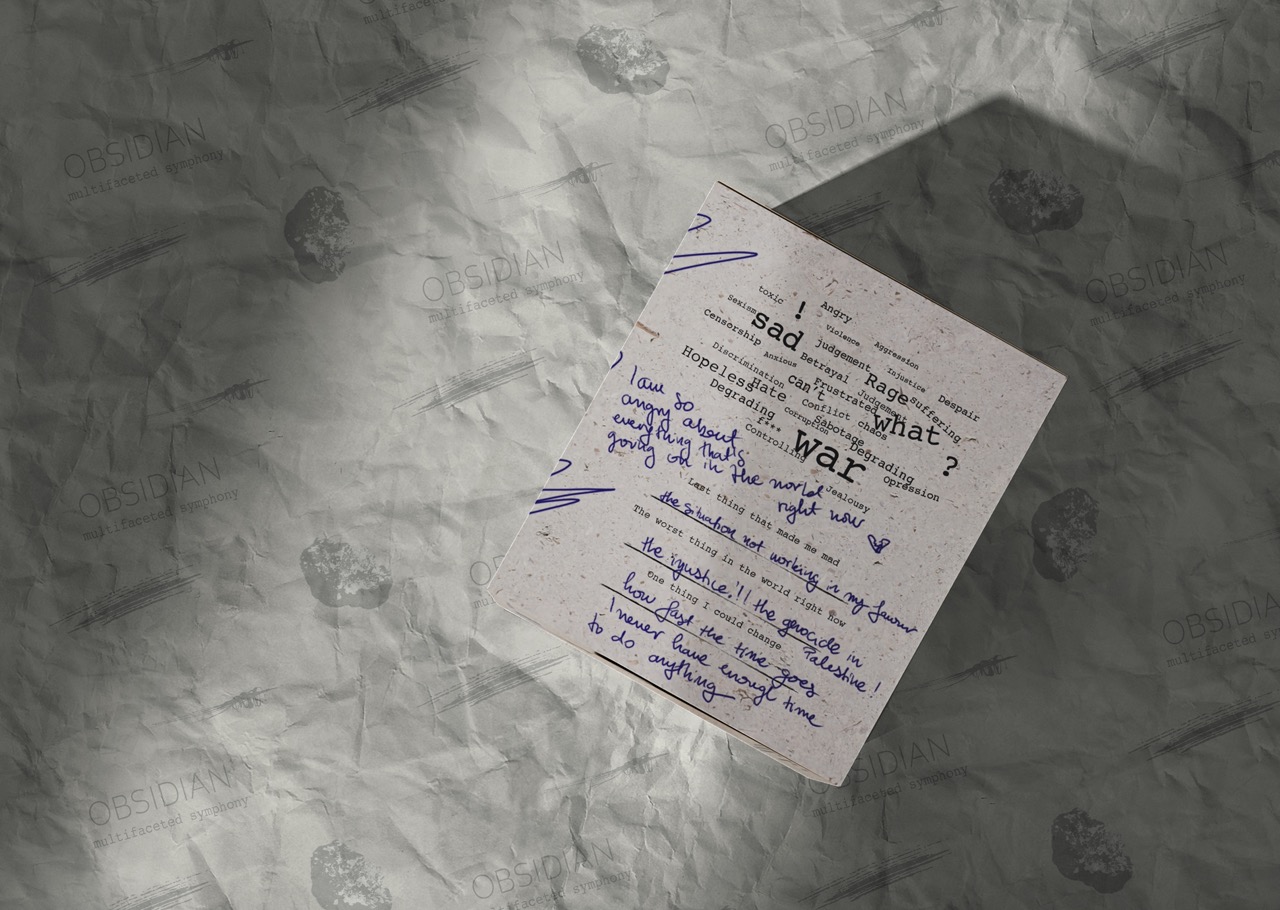 OBSIDIAN
multifaceted symphony
toxic
!
Angry
Sexism
sad
Violence
Aggression
Censorship
judgement
Injustice
Anxious
Betrayal
Rage
Suffering
Despair
Discrimination
can't
Frustrated
Judgement
Hopeless
Hate
Conflict
chaos
what
?
Degrading
corruption
Sabotage
f***
war
Degrading
Controlling
Opression
Jealousy
I am so
angry about
everything that's
going on in the world
right now
Last thing that made me mad
the situation not working in my favour
The worst thing in the world right now
the injustice!! the genocide in
Palestine!
One thing I could change
how fast the time goes
I never have enough time
to do anything
OBSIDIAN
multifaceted symphony
OBSIDIAN
multifaceted symphony
OBSIDIAN
multifaceted symphony
OBSIDIAN
multifaceted symphony
OBSIDIAN
multifaceted symphony
OBSIDIAN
multifaceted symphony
OBSIDIAN
multifaceted symphony